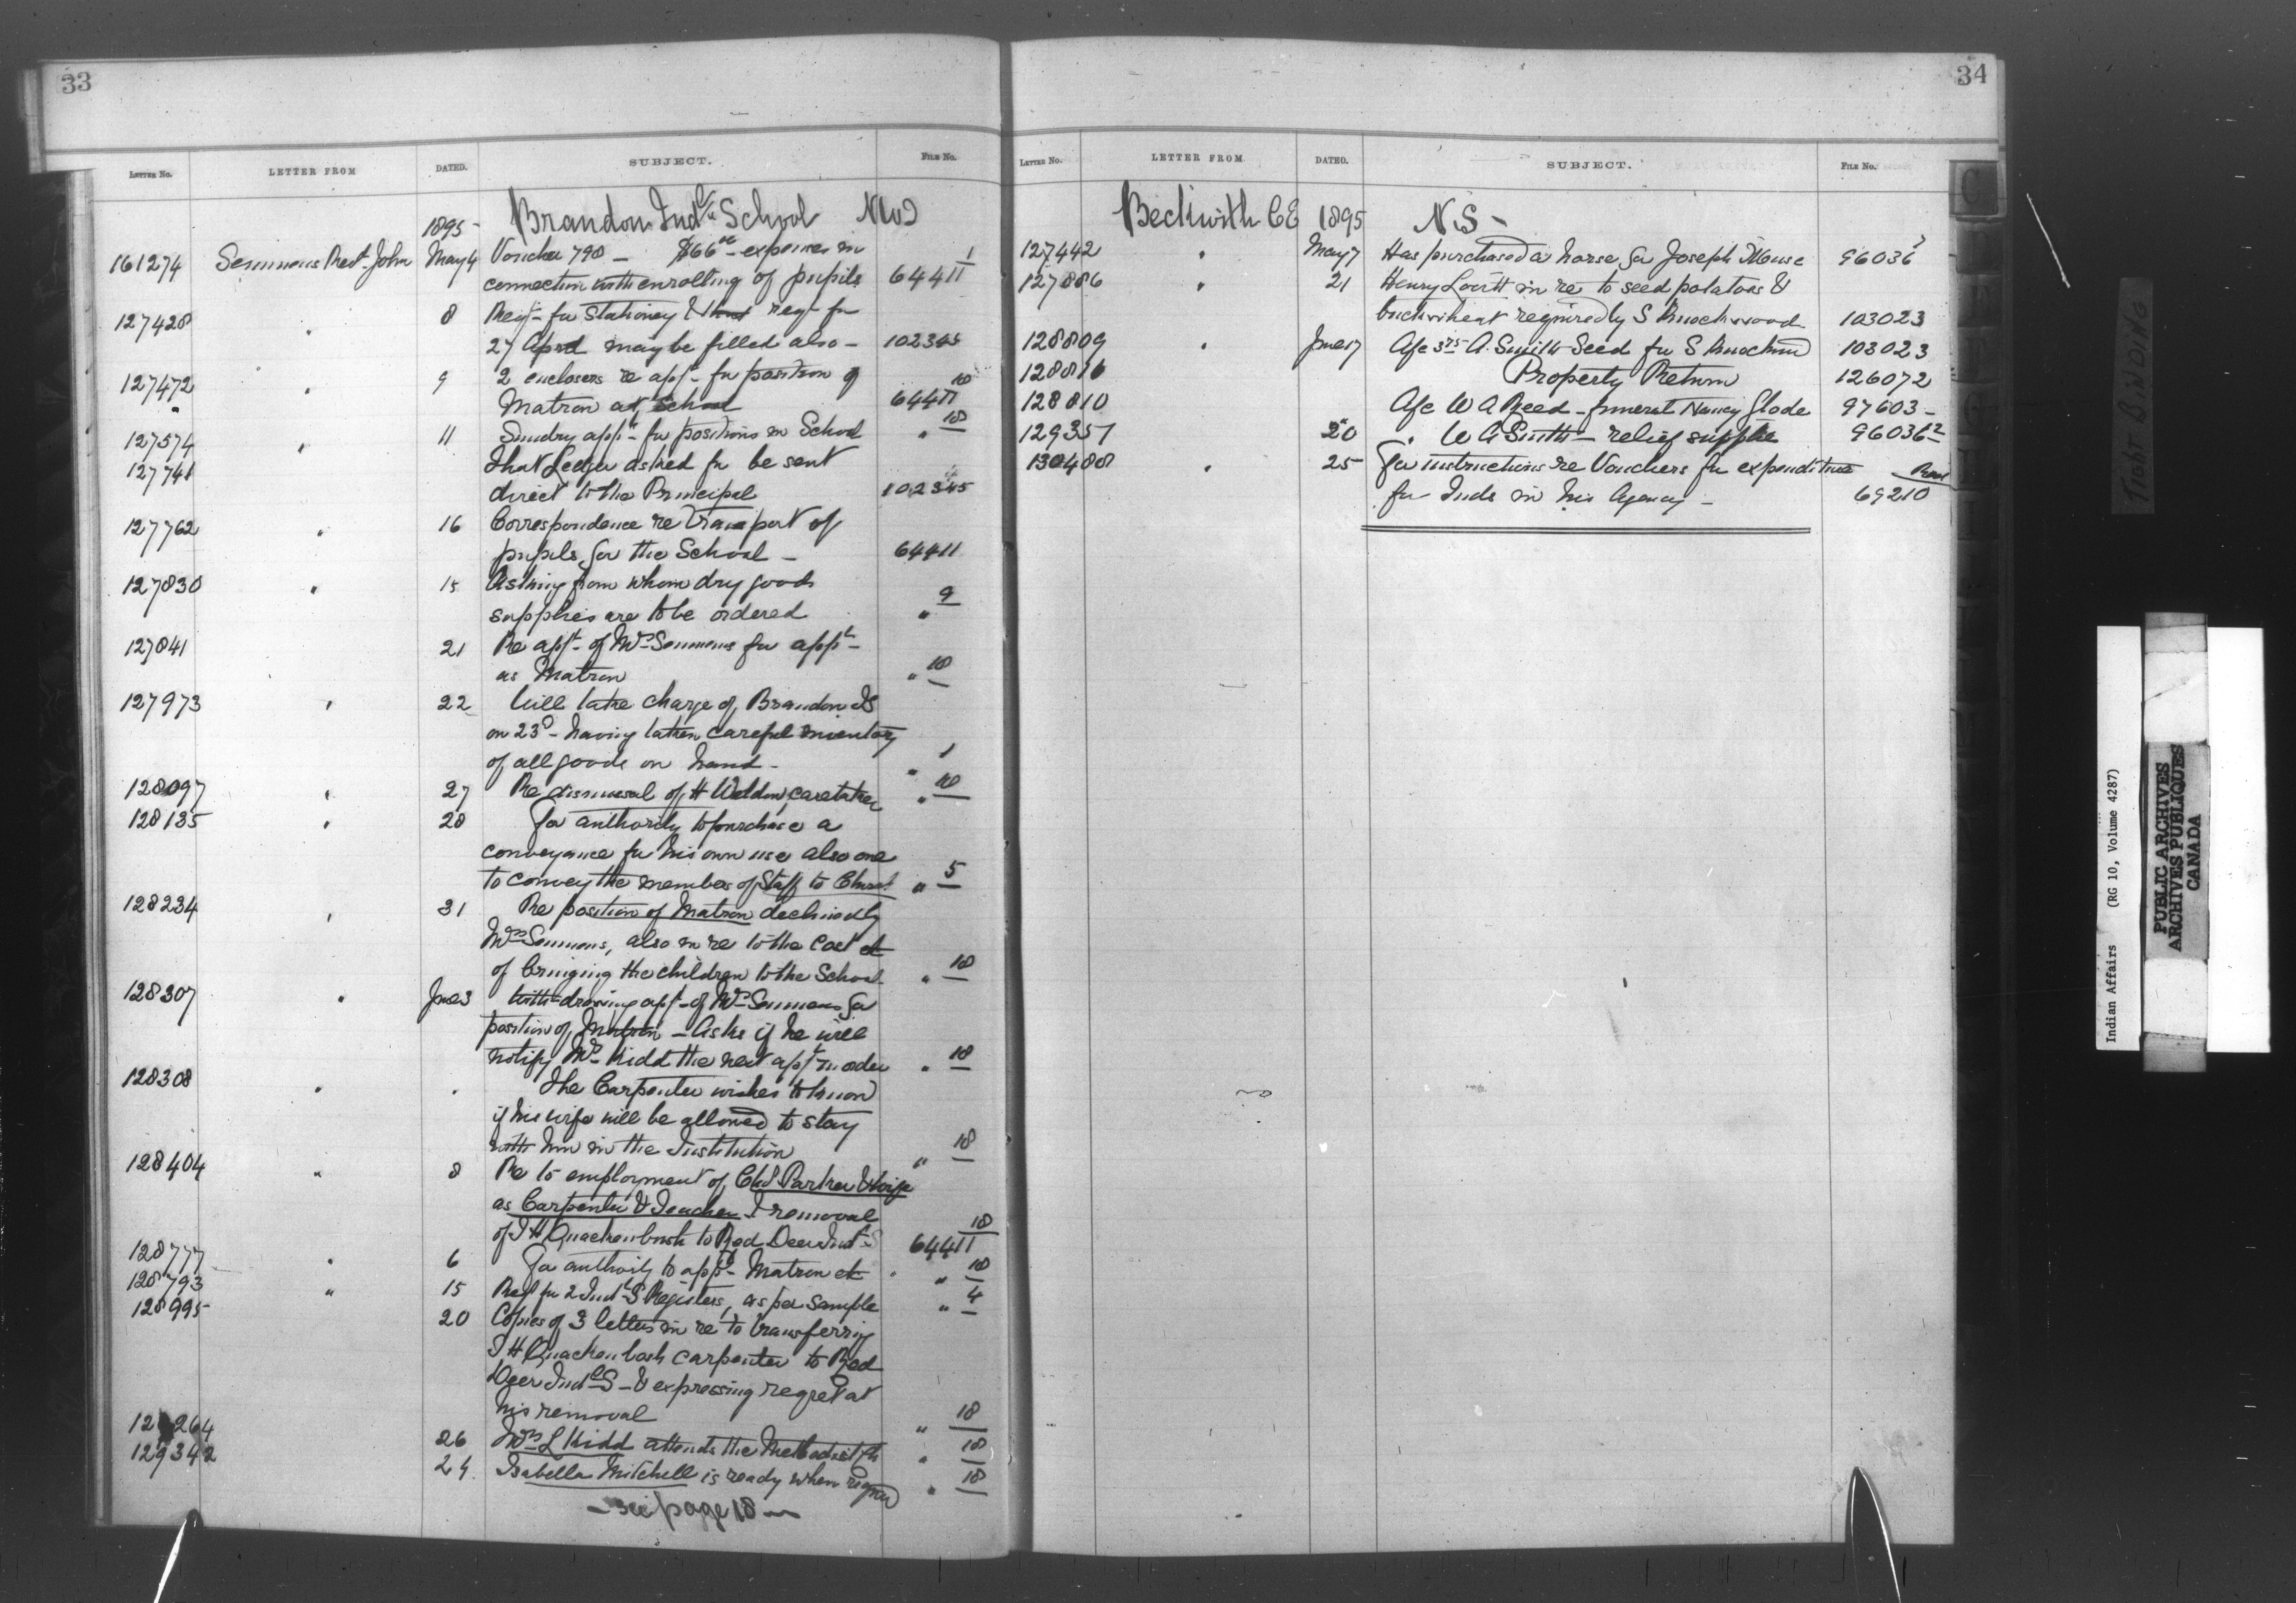 33
LETTER No. LETTER FROM DATED. SUBJECT. FILE No.
1895- Brandon Indl School No 2
161274 Semmens Revd John May 4 Voucher 798 - $66 00 - expenses in
connection with enrolling of pupils 64411 1
127428 " 8 Reqn for Stationery & that reqn for
27 April may be filled also - 102345
127472 " 9 2 enclosers re appn for position of
Matron at School 64411 18
127574 " 11 Sundry appns for positions in School " 18
127741 That Ledger asked for be sent
direct to the Principal 102345
127762 " 16 Correspondence re transport of
pupils for the School - 64411
127830 " 15 Asking from whom dry goods
supplies are to be ordered " 9
127841 21 Re appt of Mrs Semmens for appt -
as Matron " 18
127973 " 22 Will take charge of Brandon IS
on 23d - having taken careful inventory
of all goods on hand - " 1
128097 " 27 Re dismissal of H Weldon, caretaker " 18
128135 " 28 For authority to purchase a
conveyance for his own use also one
to convey the members of Staff to Church " 5
128234 " 31 Re position of Matron declined by
Mrs Semmens, also in re to the cost et
of bringing the children to the School - " 18
128307 " June 3 With-drawing appn of Mrs Semmens for
position of Matron - Asks if he will
notify Mrs Kidd the next appt in order " 18
128308 " " The Carpenter wishes to know
if his wife will be allowed to stay
with him in the Institution " 18
128404 " 8 Re to employment of Chs Parker & wife
as Carpenter & Teacher & removal
of J H Quackenbush to Red Deer Inst S 64411 18
128777 " 6 For authority to appt Matron et " 18
128793 " 15 Reqn for 2 Indl S Registers, as per sample " 4
128995 20 Copies of 3 letters in re to transferring
J H Quackenbush carpenter to Red
Deer Indl S - & expressing regret at
his removal " 18
264 26 Mrs L Kidd attends the Methodist Ch " 18
129342 24 Isabella Mitchell is ready when reqred " 18
- see page 18 -
34
LETTER No. LETTER FROM DATED. SUBJECT. FILE No.
Beckwith CE 1895 N S -
127442 " May 7 Has purchased a horse for Joseph Mouse 96036
127886 " 21 Henry Lovitt in re to seed potatoes &
buckwheat required by S Knockwood 103023
128809 " June 17 A/c A. Smith Seed for S Knockwood 103023
128816 Property Return 126072
128810 A/c W A Reed - funeral Nancy Glode 97603 -
129357 20 " W A Smith - relief supplies 96036 2
130488 " 25 For instructions re Vouchers for expenditure
for Inds in his Agency - 69210
TIGHT BINDING
Indian Affairs (RG 10, Volume 4287)
PUBLIC ARCHIVES
ARCHIVES PUBLIQUES
CANADA